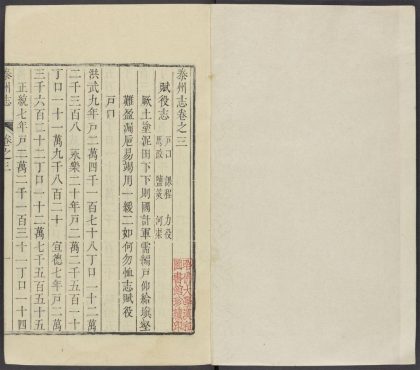 泰州志卷之三
賦役志 戶口 課程 力役
馬政 鹽筴 河束
厥土塗泥田下下則國計軍需編戶仰給瑣壑
難盈漏巵易竭用一緩二如何勿恤志賦役
戶口
洪武九年戶二萬四千一百七十八丁口一十二萬
二千三百八 永樂二十年戶二萬二千五百一十
丁口一十一萬九千八百二十 宣德七年戶二萬
三千六百二十二丁口一十二萬七千五百五十五
正統七年戶二萬二千一百三十一丁口一十四
泰州志
卷之三
一